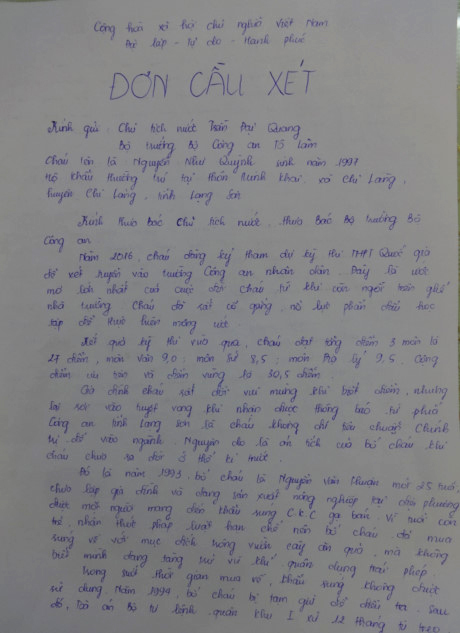 Cộng hòa xã hội chủ nghĩa Việt Nam
Độc lập - Tự do - Hạnh phúc
ĐƠN CẦU XÉT
Kính gửi: Chủ tịch nước Trần Đại Quang
Bộ trưởng Bộ Công an Tô Lâm
Cháu tên là: Nguyễn Như Quỳnh sinh năm 1997
Hộ khẩu thường trú tại thôn Minh Khai, xã Chi Lăng,
huyện Chi Lăng, tỉnh Lạng Sơn
Kính thưa bác Chủ tịch nước, thưa bác Bộ trưởng Bộ
Công an
Năm 2016, cháu đăng ký tham dự kỳ thi THPT Quốc gia
để xét tuyển vào trường Công an nhân dân. Đây là ước
mơ lớn nhất của cuộc đời cháu từ khi còn ngồi trên ghế
nhà trường. Cháu đã rất cố gắng, nỗ lực phấn đấu học
tập để thực hiện mong ước.
Kết quả kỳ thi vừa qua, cháu đạt tổng điểm 3 môn là
27 điểm, môn văn 9,0; môn Sử 8,5; môn Địa lý 9,5. Cộng
điểm ưu tiên và điểm vùng là 30,5 điểm.
Gia đình cháu rất đỗi vui mừng khi biết điểm, nhưng
lại rơi vào tuyệt vọng khi nhận được thông báo từ phía
Công an tỉnh Lạng Sơn là cháu không đủ tiêu chuẩn Chính
trị để vào ngành. Nguyên do là án tích của bố cháu khi
cháu chưa ra đời ở thế kỉ trước.
Đó là năm 1993, bố cháu là Nguyễn Văn Thuân mới 25 tuổi,
chưa lập gia đình và đang sản xuất nông nghiệp tại địa phương
được một người mang đến khẩu súng C.K.C gạ bán. Vì tuổi còn
trẻ, nhận thức pháp luật hạn chế nên bố cháu đã mua
súng về với mục đích trông vườn cây ăn quả, mà không
biết mình đang tàng trữ vũ khí quân dụng trái phép.
Trong suốt thời gian mua về, khẩu súng không được
sử dụng. Năm 1994, bố cháu bị tạm giữ để điều tra. Sau
đó, tòa án Bộ tư lệnh quân khu I xử 12 tháng tù treo